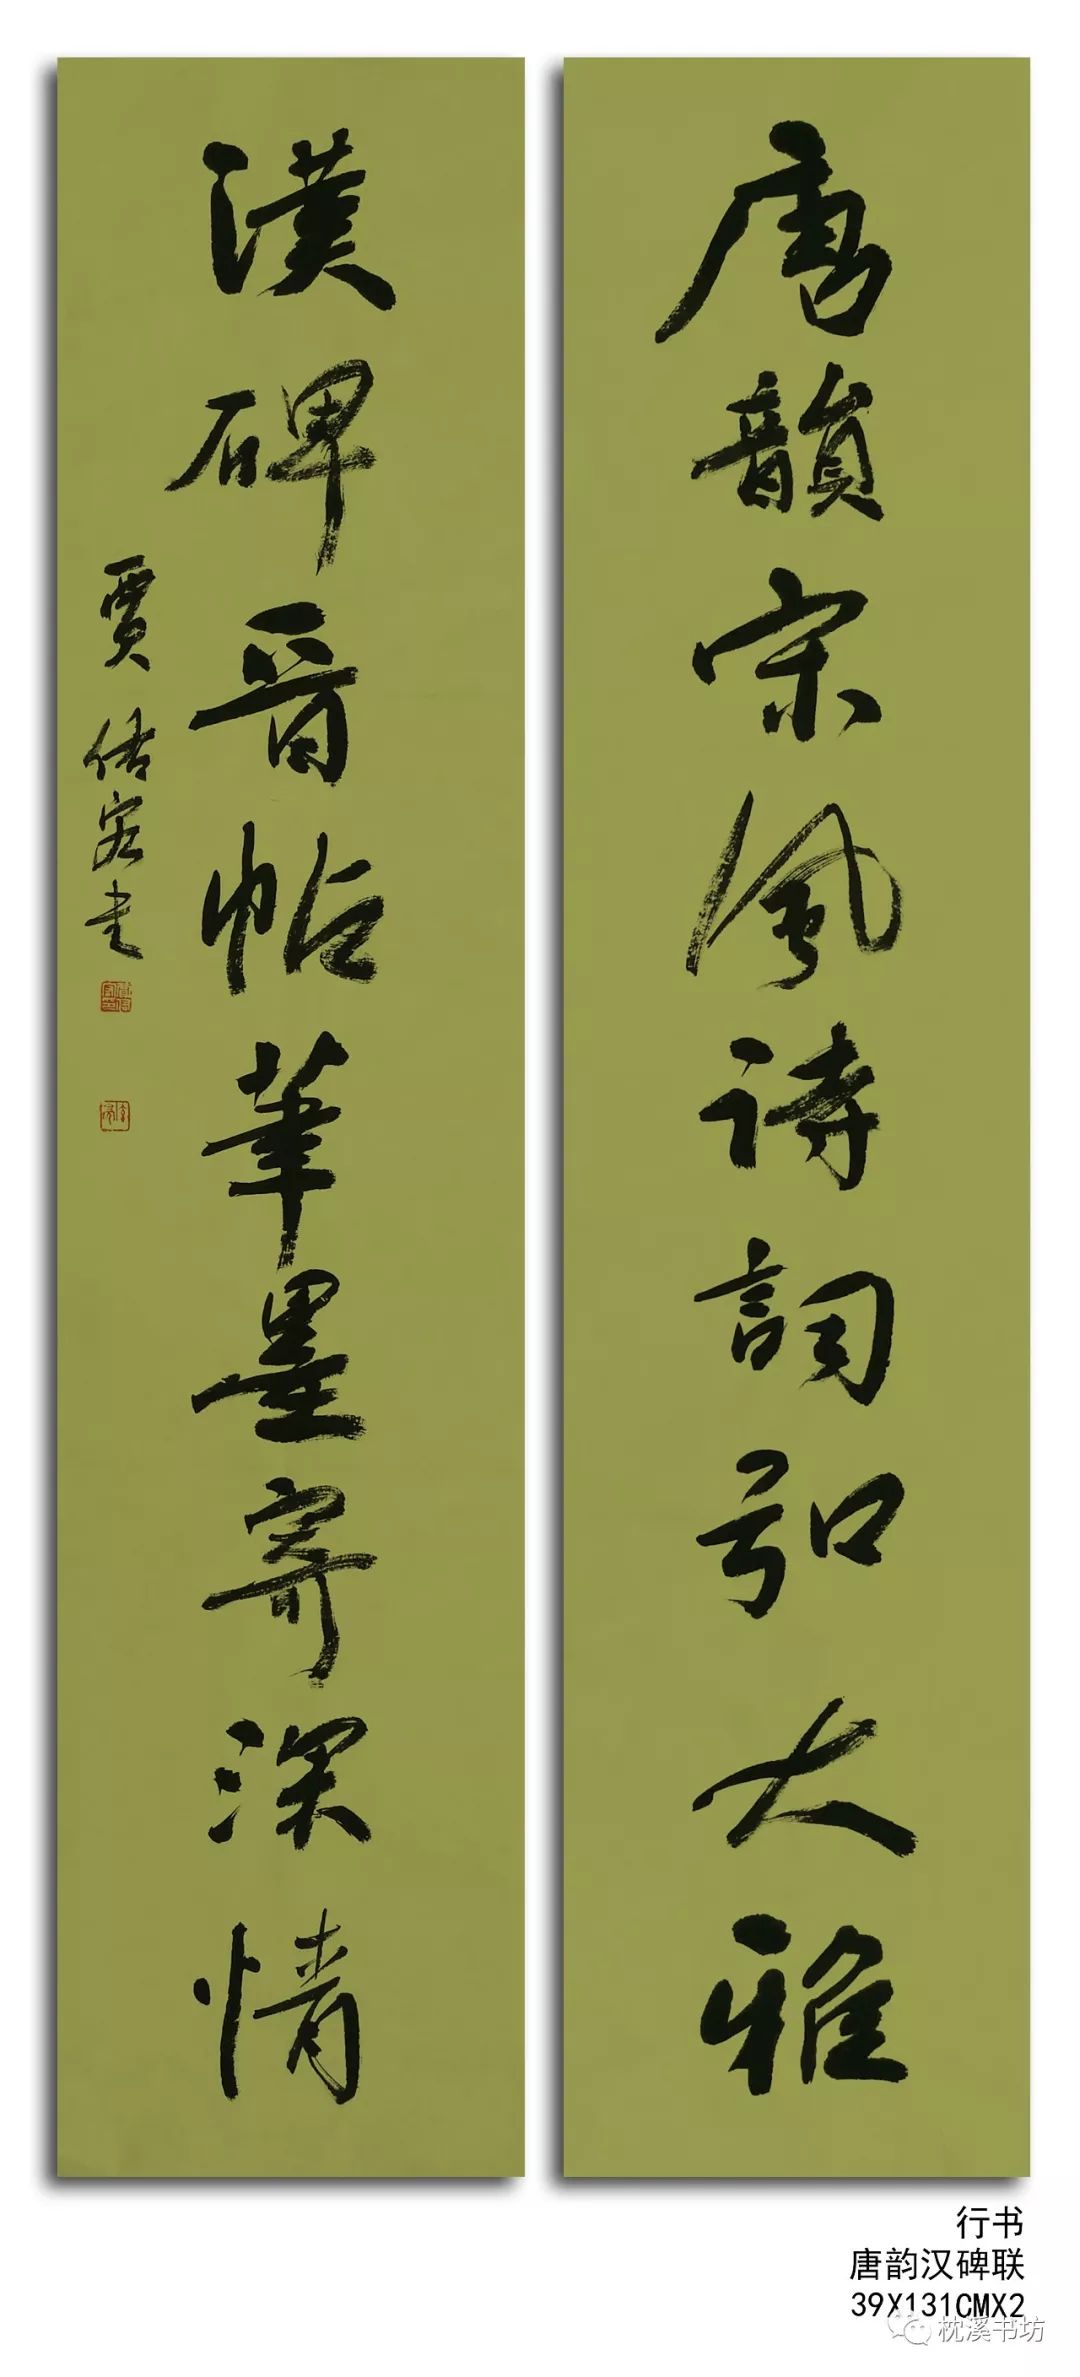 唐韻宋風诗詞弘大雅
漢碑晋帖筆墨寄深情
賈佑宏书
行书
唐韵汉碑联
39X131CMX2
枕溪书坊